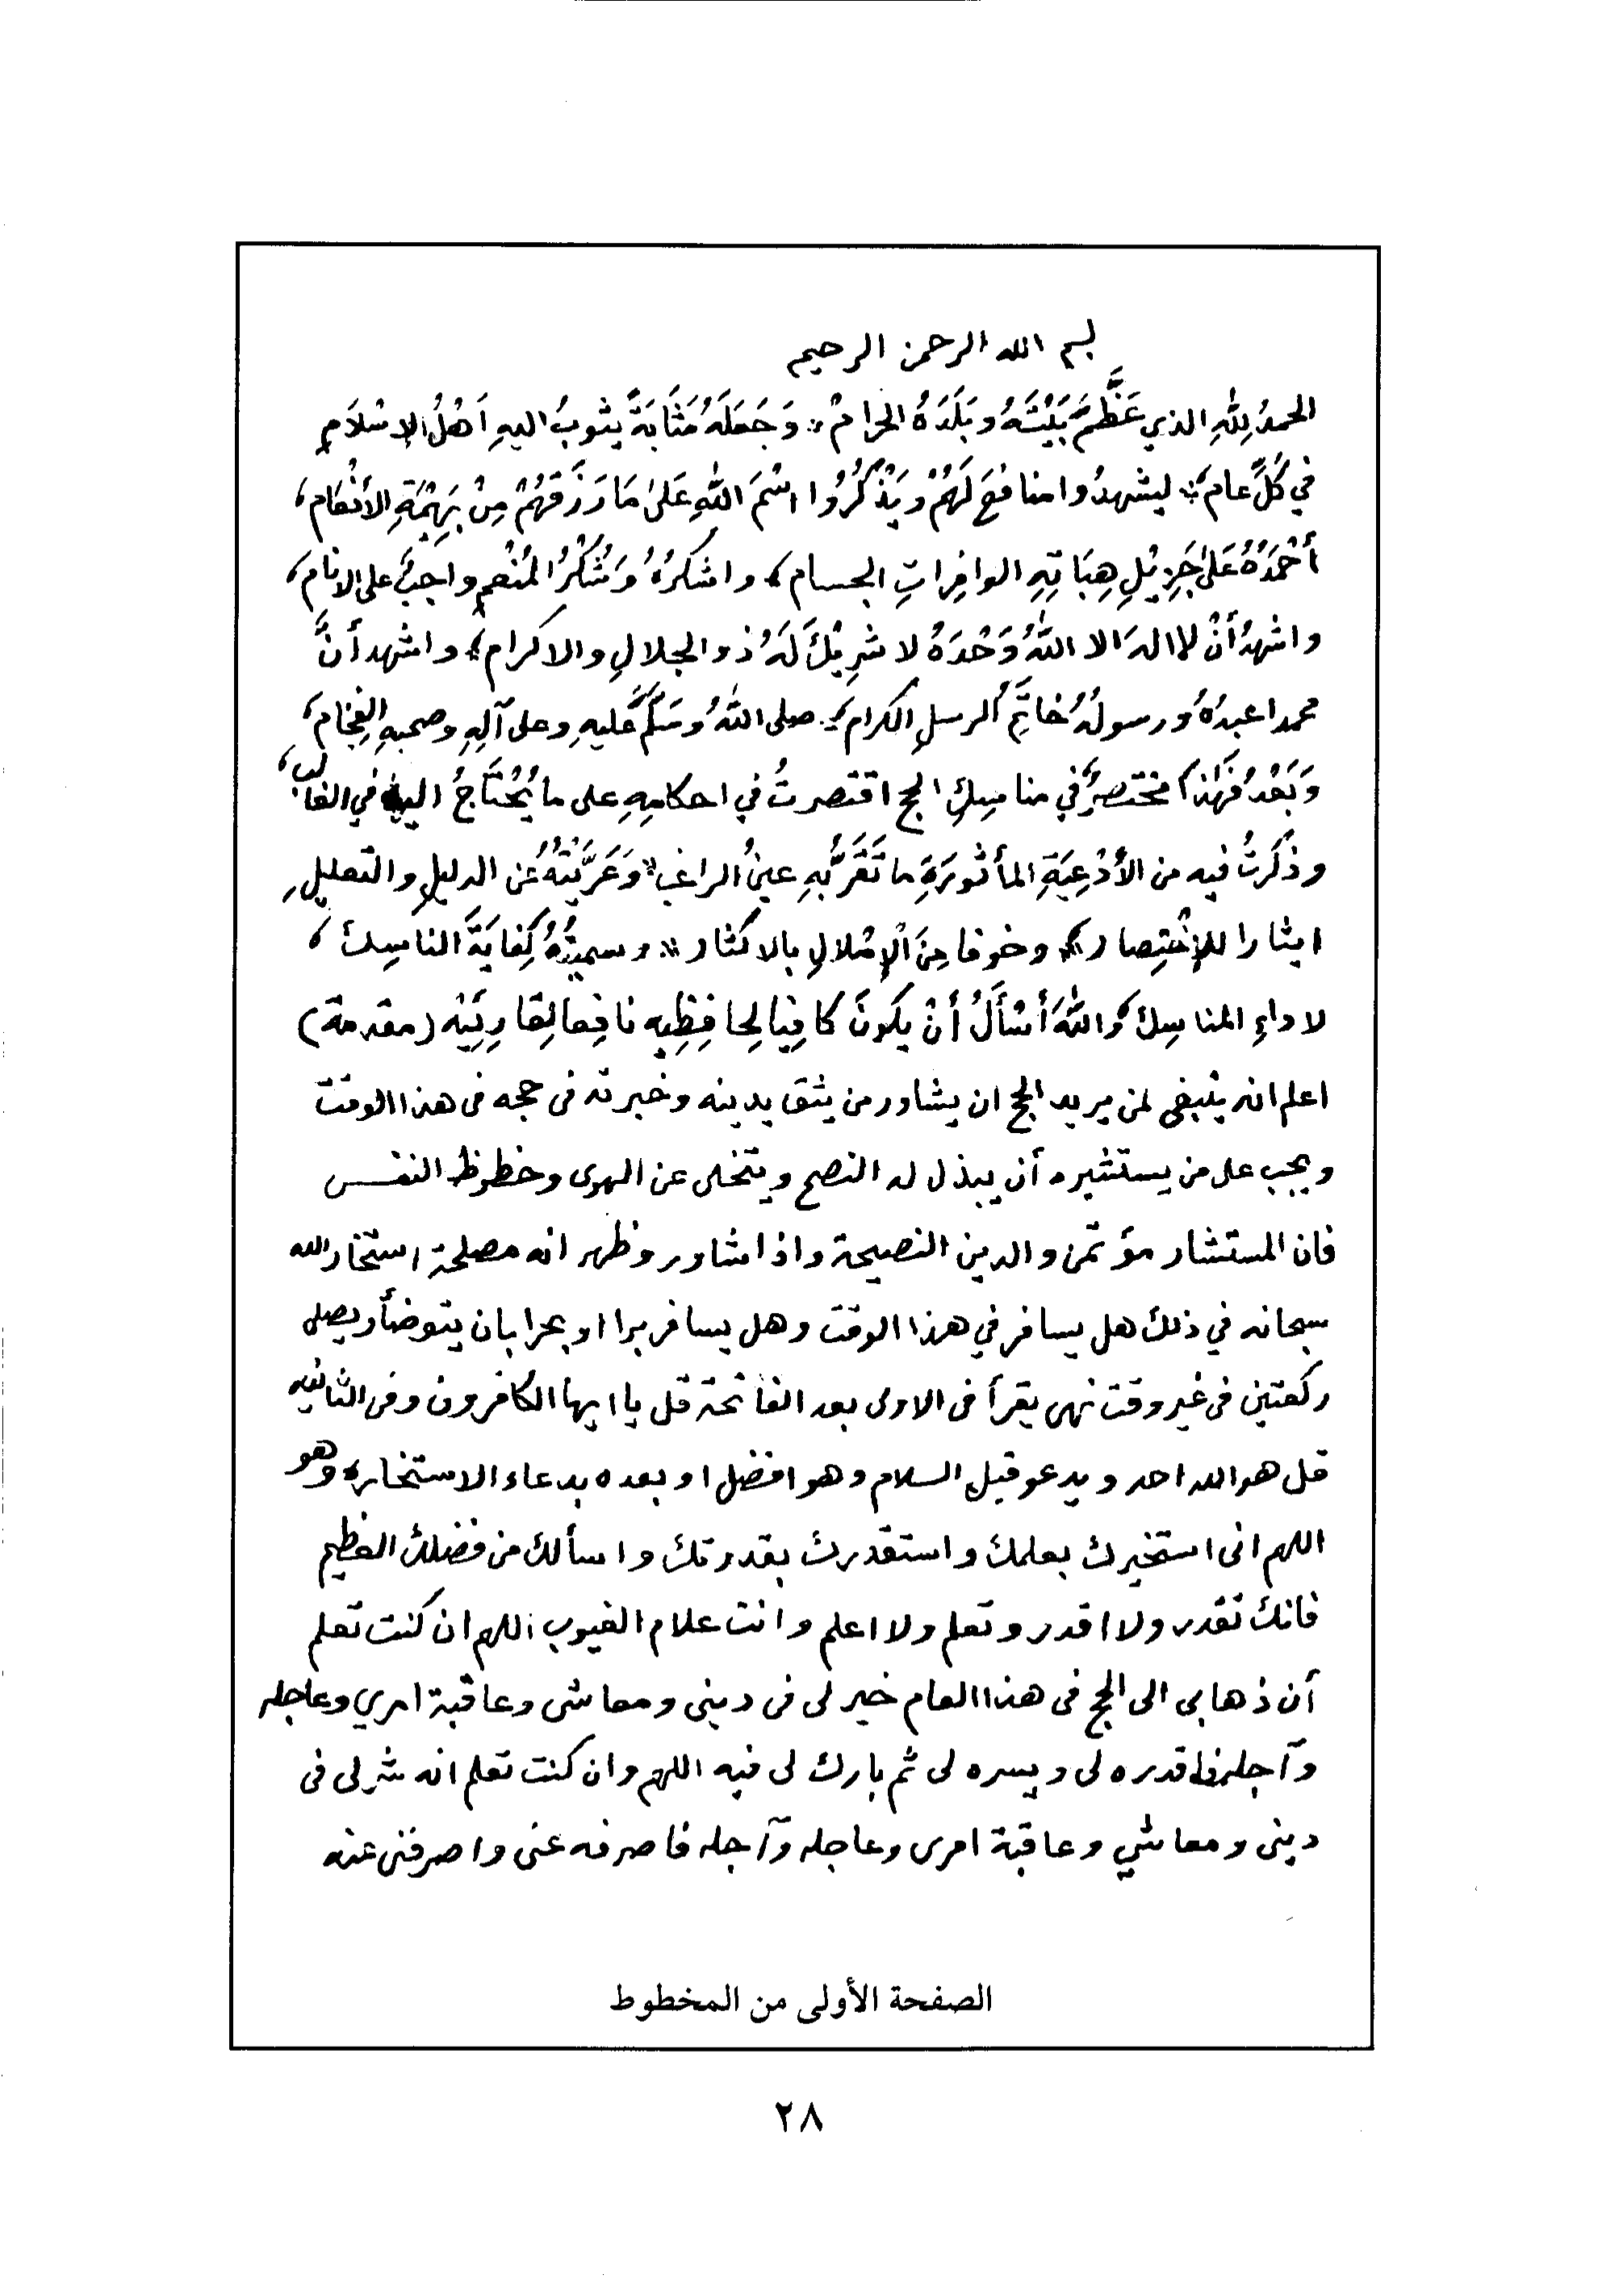 بسم الله الرحمن الرحيم
الحمدُ لِلّٰهِ الذي عَظَّمَ بَيْتَهُ وبَلَدَهُ الحرامْ * وَجَعَلَهُ مَثَابَةً يثوبُ اليهِ اَهْلُ الاِسْلَامِ
في كُلِّ عام * ليشهدُوا منافعَ لَهُمْ ويَذْكُرُوا اسْمَ اللّٰهِ عَلىٰ مَا رَزَقَهُمْ مِنْ بَهِيْمَةِ الأَنْعَام،
أَحْمَدُهُ عَلىٰ جَزِيْلِ هِبَاتِهِ الوافِراتِ الجسام، واشكرُهُ وَشُكْرُ المُنْعِمِ واجبٌ على الانام،
واشهدُ أَنْ لا اله الا اللّٰهُ وَحْدَهُ لا شرِيْكَ لَهُ ذو الجلالِ والاكرام، واشهد أَنَّ
محمدا عبدُهُ ورسولُهُ خاتَمُ الرسلِ الكرام، صلى اللّٰهُ وسَلَّمَ عليهِ وعلى آلِهِ وصحبهِ الفِخام،
وَبَعْدُ فَهٰذا مختصرٌ في مناسِكِ الحج اقتصرتُ في احكامِهِ على ما يُحْتَاجُ اليه في الغالب،
وذكَرتُ فيه من الأَدْعِيَةِ المأثورَةِ ما تَقَرُّ بِهِ عينُ الراغب * وَعَرَّيْتُهُ عن الدليلِ والتعليلِ
ايثارا للاِخْتِصار * وخوفا مِنَ الْاِمْلالِ بالاكثار * وسميتُهُ كِفايَةَ الناسِك،
لاداءِ المناسِك، واللّٰهَ أَسْأَلُ أَنْ يكونَ كافِيا لِحافِظِيه نافِعا لِقارِئِيْه (مقدمة)
اعلم انه ينبغي لمن يريد الحج ان يشاور من يثق بدينه وخبرته في حجه في هذا الوقت
ويجب على من يستشيره أن يبذل له النصح ويتخلى عن الهوى وحظوظ النفس
فان المستشار مؤتمن والدين النصيحة واذا شاور وظهر انه مصلحة استخار الله
سبحانه في ذلك هل يسافر في هذا الوقت وهل يسافر برا او بحرا بان يتوضأ ويصلى
ركعتين في غير وقت نهي يقرأ في الاولى بعد الفاتحة قل يا ايها الكافرون وفي الثانيه
قل هو الله احد ويدعو قبل السلام وهو افضل او بعده بدعاء الاستخاره وهو
اللهم اني استخيرك بعلمك واستقدرك بقدرتك واسألك من فضلك العظيم
فانك تقدر ولا اقدر وتعلم ولا اعلم وانت علام الغيوب اللهم ان كنت تعلم
أن ذهابي الى الحج في هذا العام خير لي في ديني ومعاشي وعاقبة امري وعاجله
وآجله فاقدره لي ويسره لي ثم بارك لي فيه اللهم وان كنت تعلم انه شر لي في
ديني ومعاشي وعاقبة امري وعاجله وآجله فاصرفه عني واصرفني عنه
الصفحة الأولى من المخطوط
٢٨